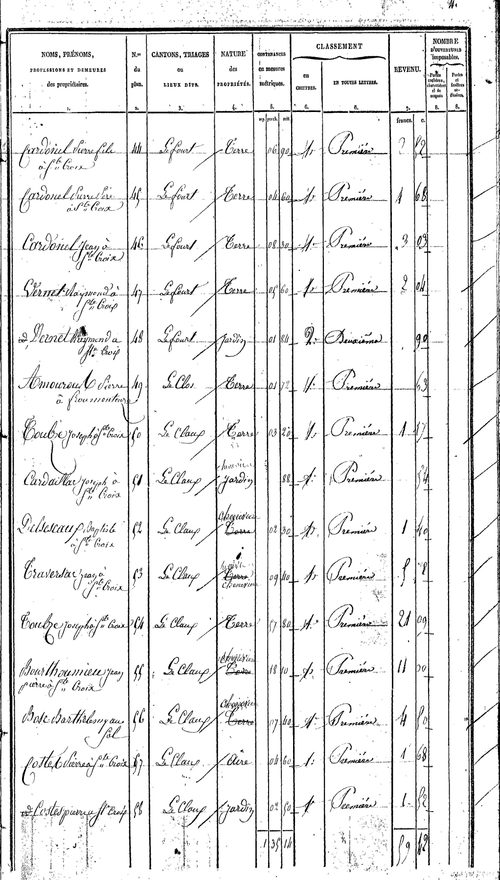 4.
NOMS, PRÉNOMS, PROFESSIONS ET DEMEURES des propriétaires.
N.os du plan.
CANTONS, TRIAGES OU LIEUX DITS.
NATURE des PROPRIÉTÉS.
CONTENANCES en mesures métriques.
CLASSEMENT
en CHIFFRES.
EN TOUTES LETTRES.
REVENU.
NOMBRE D'OUVERTURES imposables.
1. 2. 3. 4. 5. 6. 6. 7. 8. 8.
francs. c.
Cardonel Pierre fils 44 Le fourt Terre 06 90 1. Première 2 52
à Ste Croix
Cardonel Pierre 45 Le fourt Terre 04 60 1. Première 1 68
à Ste Croix
Cardonel Jean à 46 Le fourt Terre 08 30 1. Première 3 03
Ste Croix
Vernet Raymond à 47 Le fourt Terre 05 60 1. Première 2 04
Ste Croix
id. Vernet Raymond a 48 Le fourt Jardin 01 84 2. Deuxième 90
Ste Croix
Amouroux Pierre 49 Le Clos Terre 01 72 1. Première 63
à froumenture
Toulze Joseph à Ste Croix 50 Le Claux Terre 03 20 1. Première 1 17
Cardaillac Joseph à 51 Le Claux Jardin 88 1. Première 54
Ste Croix
Delseseaux Baptiste 52 Le Claux Chenevière Terre 02 30 1. Première 1 40
à Ste Croix
Traversac Jean à 53 Le Claux Terre Chenevière 09 40 1. Première 5
Ste Croix
Toulze Joseph à Ste Croix 54 Le Claux Terre 57 80 1. Première 21 09
Bourthoumieu Jean 55 Le Claux Chenevière Terre 18 10 1. Première 11 00
pierre à Ste Croix
Bosc Barthélemy au 56 Le Claux Chenevière Terre 07 40 1. Première 4 50
Sol
Costes Pierre à Ste Croix 57 Le Claux Aire 04 60 1. Première 1 68
id. Costes pierre a Ste Croix 58 Le Claux Jardin 02 50 1. Première 1 52
1 35 14
59 42